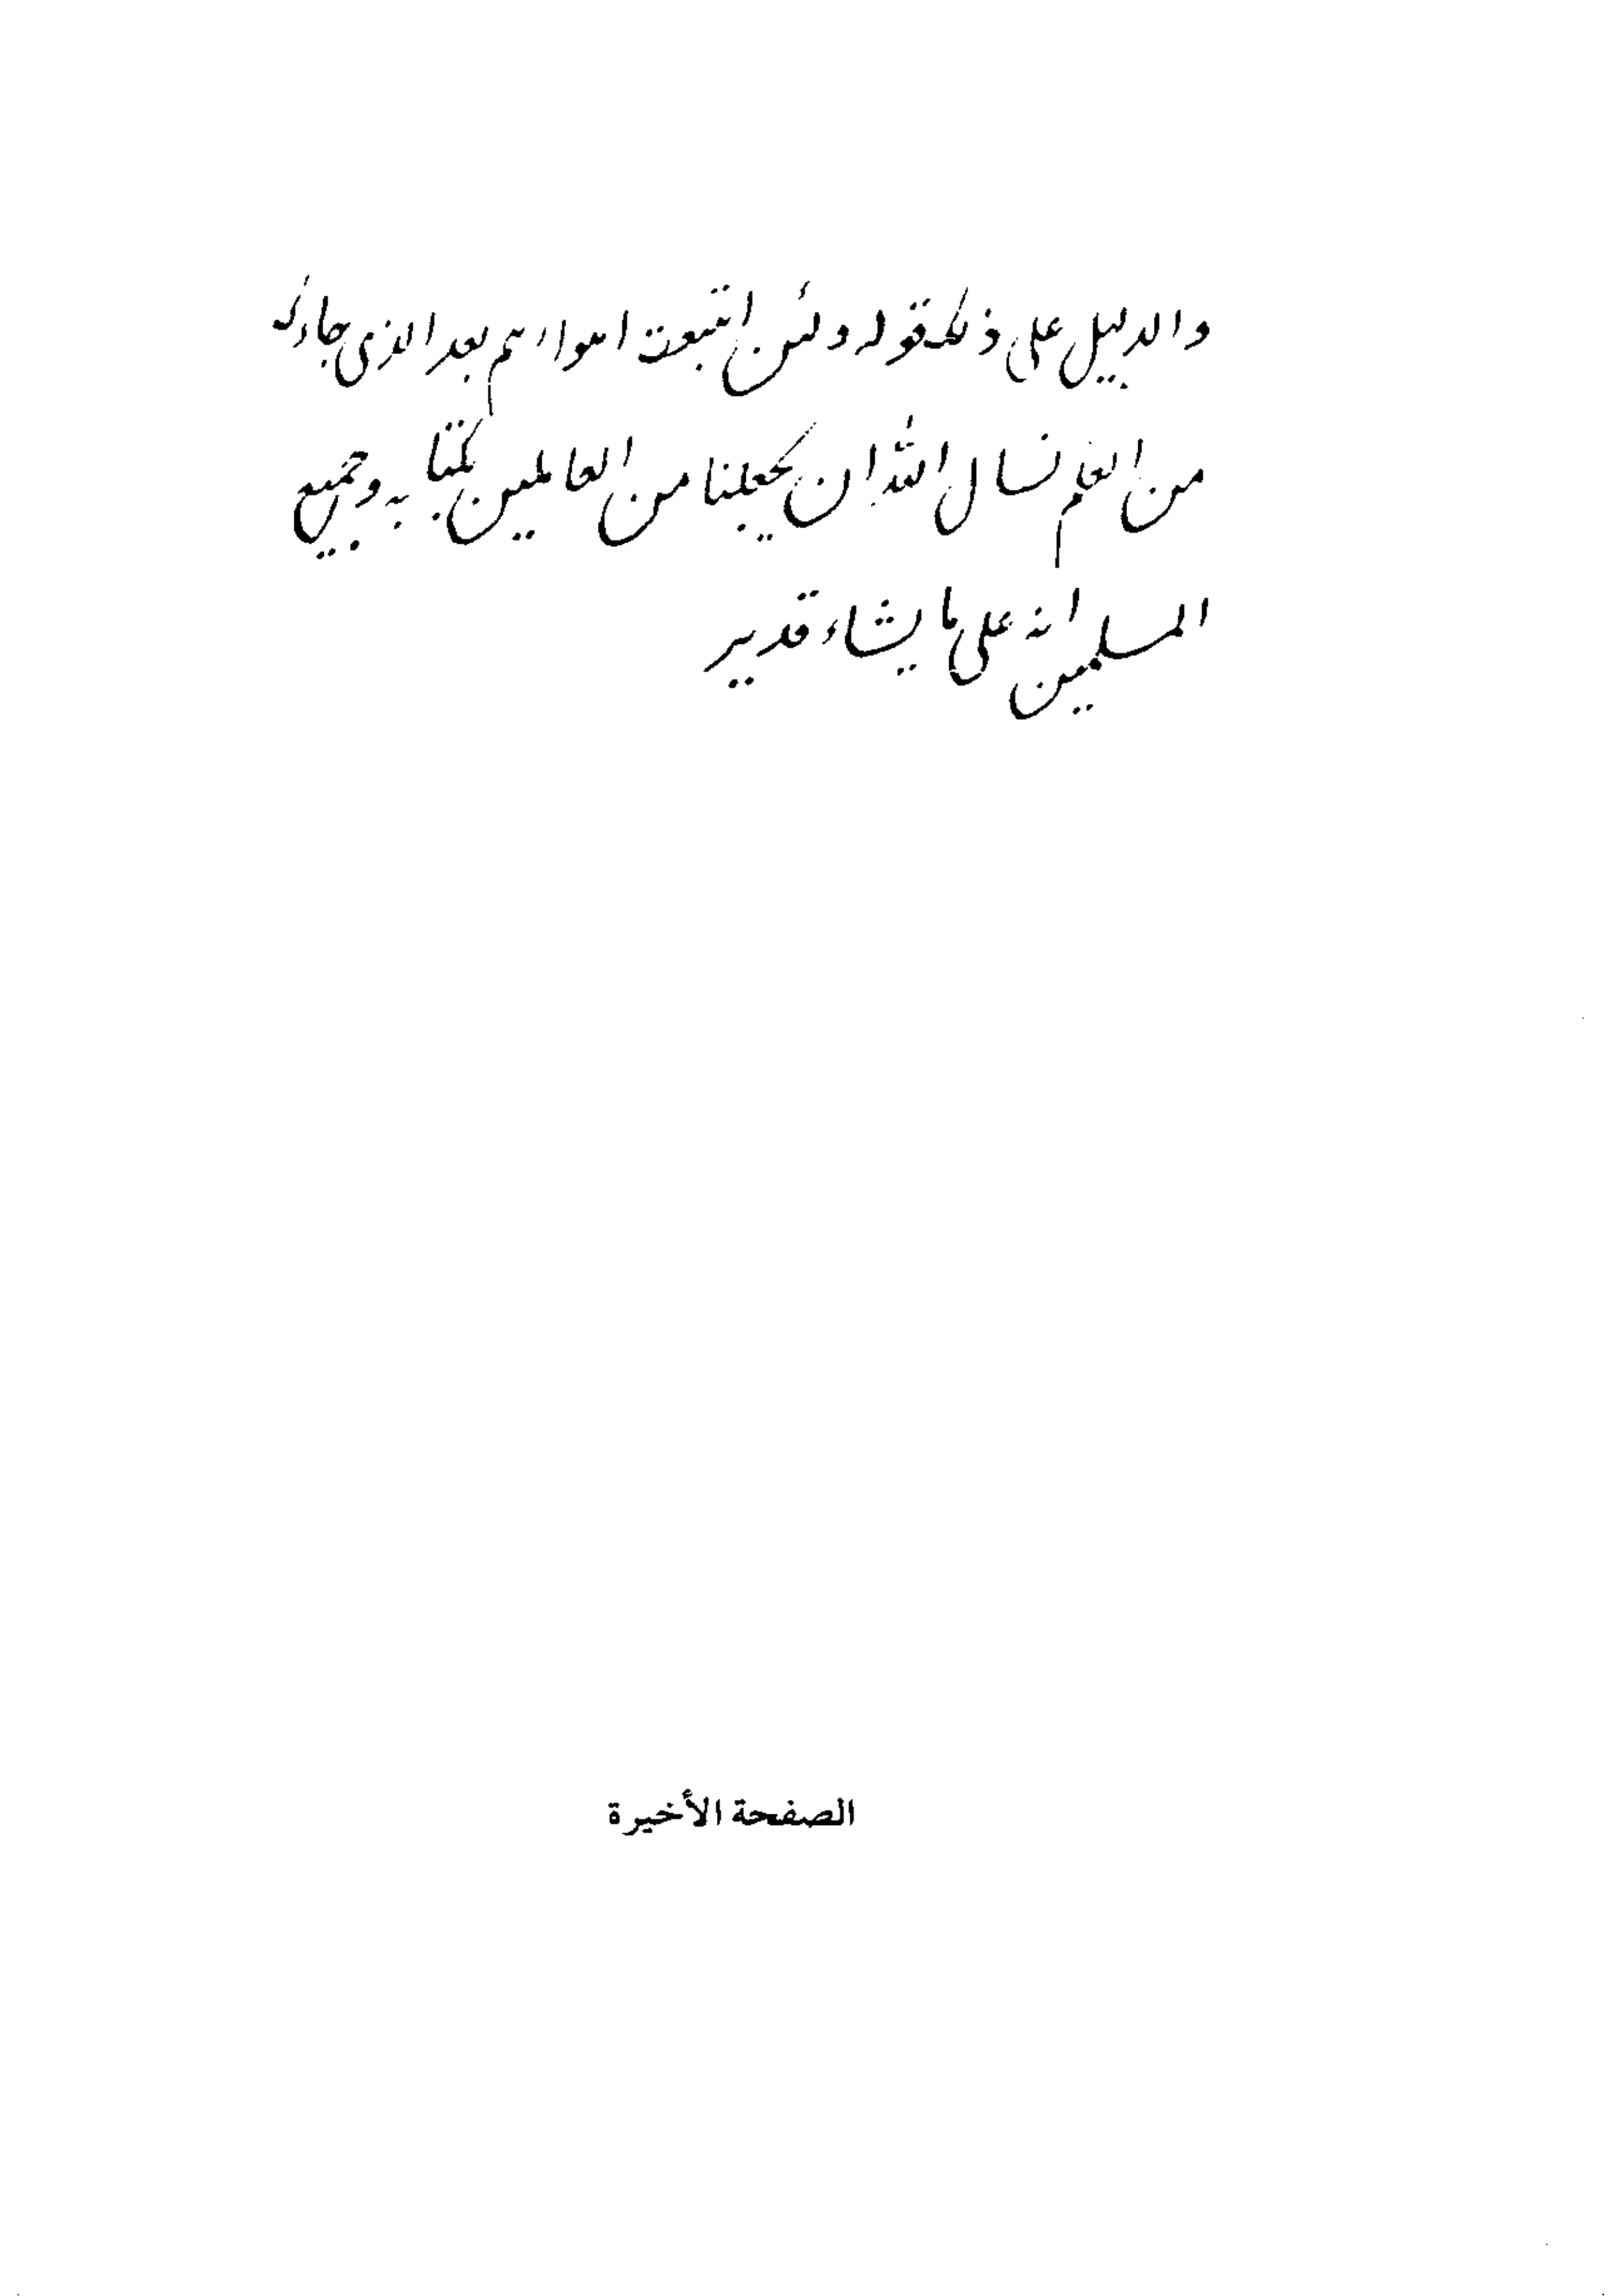 والدليل على ذلك قوله ولئن اتبعت اهواءهم بعد الذى جاءك
من العلم نسال الله ان يجعلنا من العاملين بكتابه وجميع
المسلمين انه على ما يشاء قدير
الصفحة الأخيرة